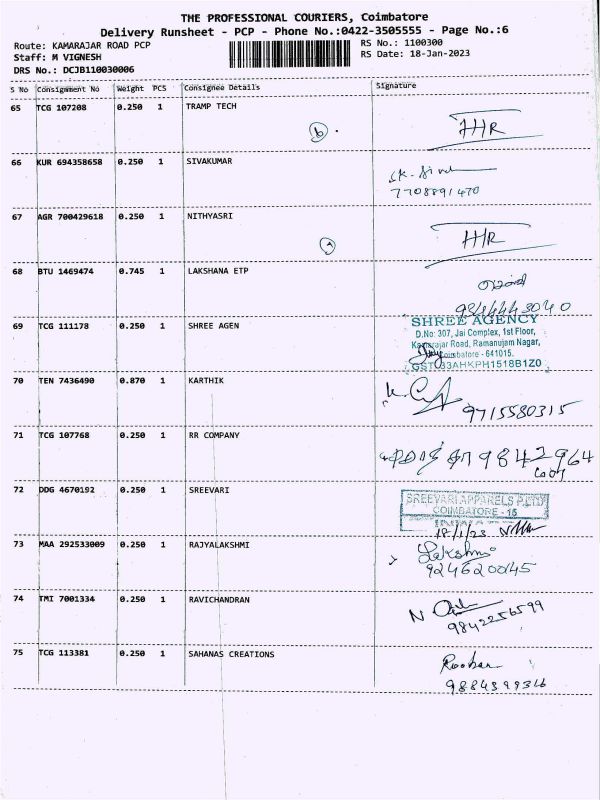 THE PROFESSIONAL COURIERS, Coimbatore
Delivery Runsheet - PCP - Phone No.:0422-3505555 - Page No.:6
Route: KAMARAJAR ROAD PCP
RS No.: 1100300
Staff: M VIGNESH
RS Date: 18-Jan-2023
DRS No.: DCJB110030006
S No Consignment No Weight PCS Consignee Details Signature
65 TCG 107208 0.250 1 TRAMP TECH
b
66 KUR 694358658 0.250 1 SIVAKUMAR
7708891470
67 AGR 700429618 0.250 1 NITHYASRI
68 BTU 1469474 0.745 1 LAKSHANA ETP
69 TCG 111178 0.250 1 SHREE AGEN
SHREE AGENCY
D.No: 307, Jai Complex, 1st Floor,
Kamarajar Road, Ramanujam Nagar,
Coimbatore - 641015.
GST: 33AHKPH1518B1Z0
70 TEN 7436490 0.870 1 KARTHIK
9715580315
71 TCG 107768 0.250 1 RR COMPANY
9842964
72 DDG 4670192 0.250 1 SREEVARI
SREEVARI APPARELS
COIMBATORE - 15
18/1/23
73 MAA 292533009 0.250 1 RAJYALAKSHMI
Lakshmi
9246200145
74 TMI 7001334 0.250 1 RAVICHANDRAN
9842256599
75 TCG 113381 0.250 1 SAHANAS CREATIONS